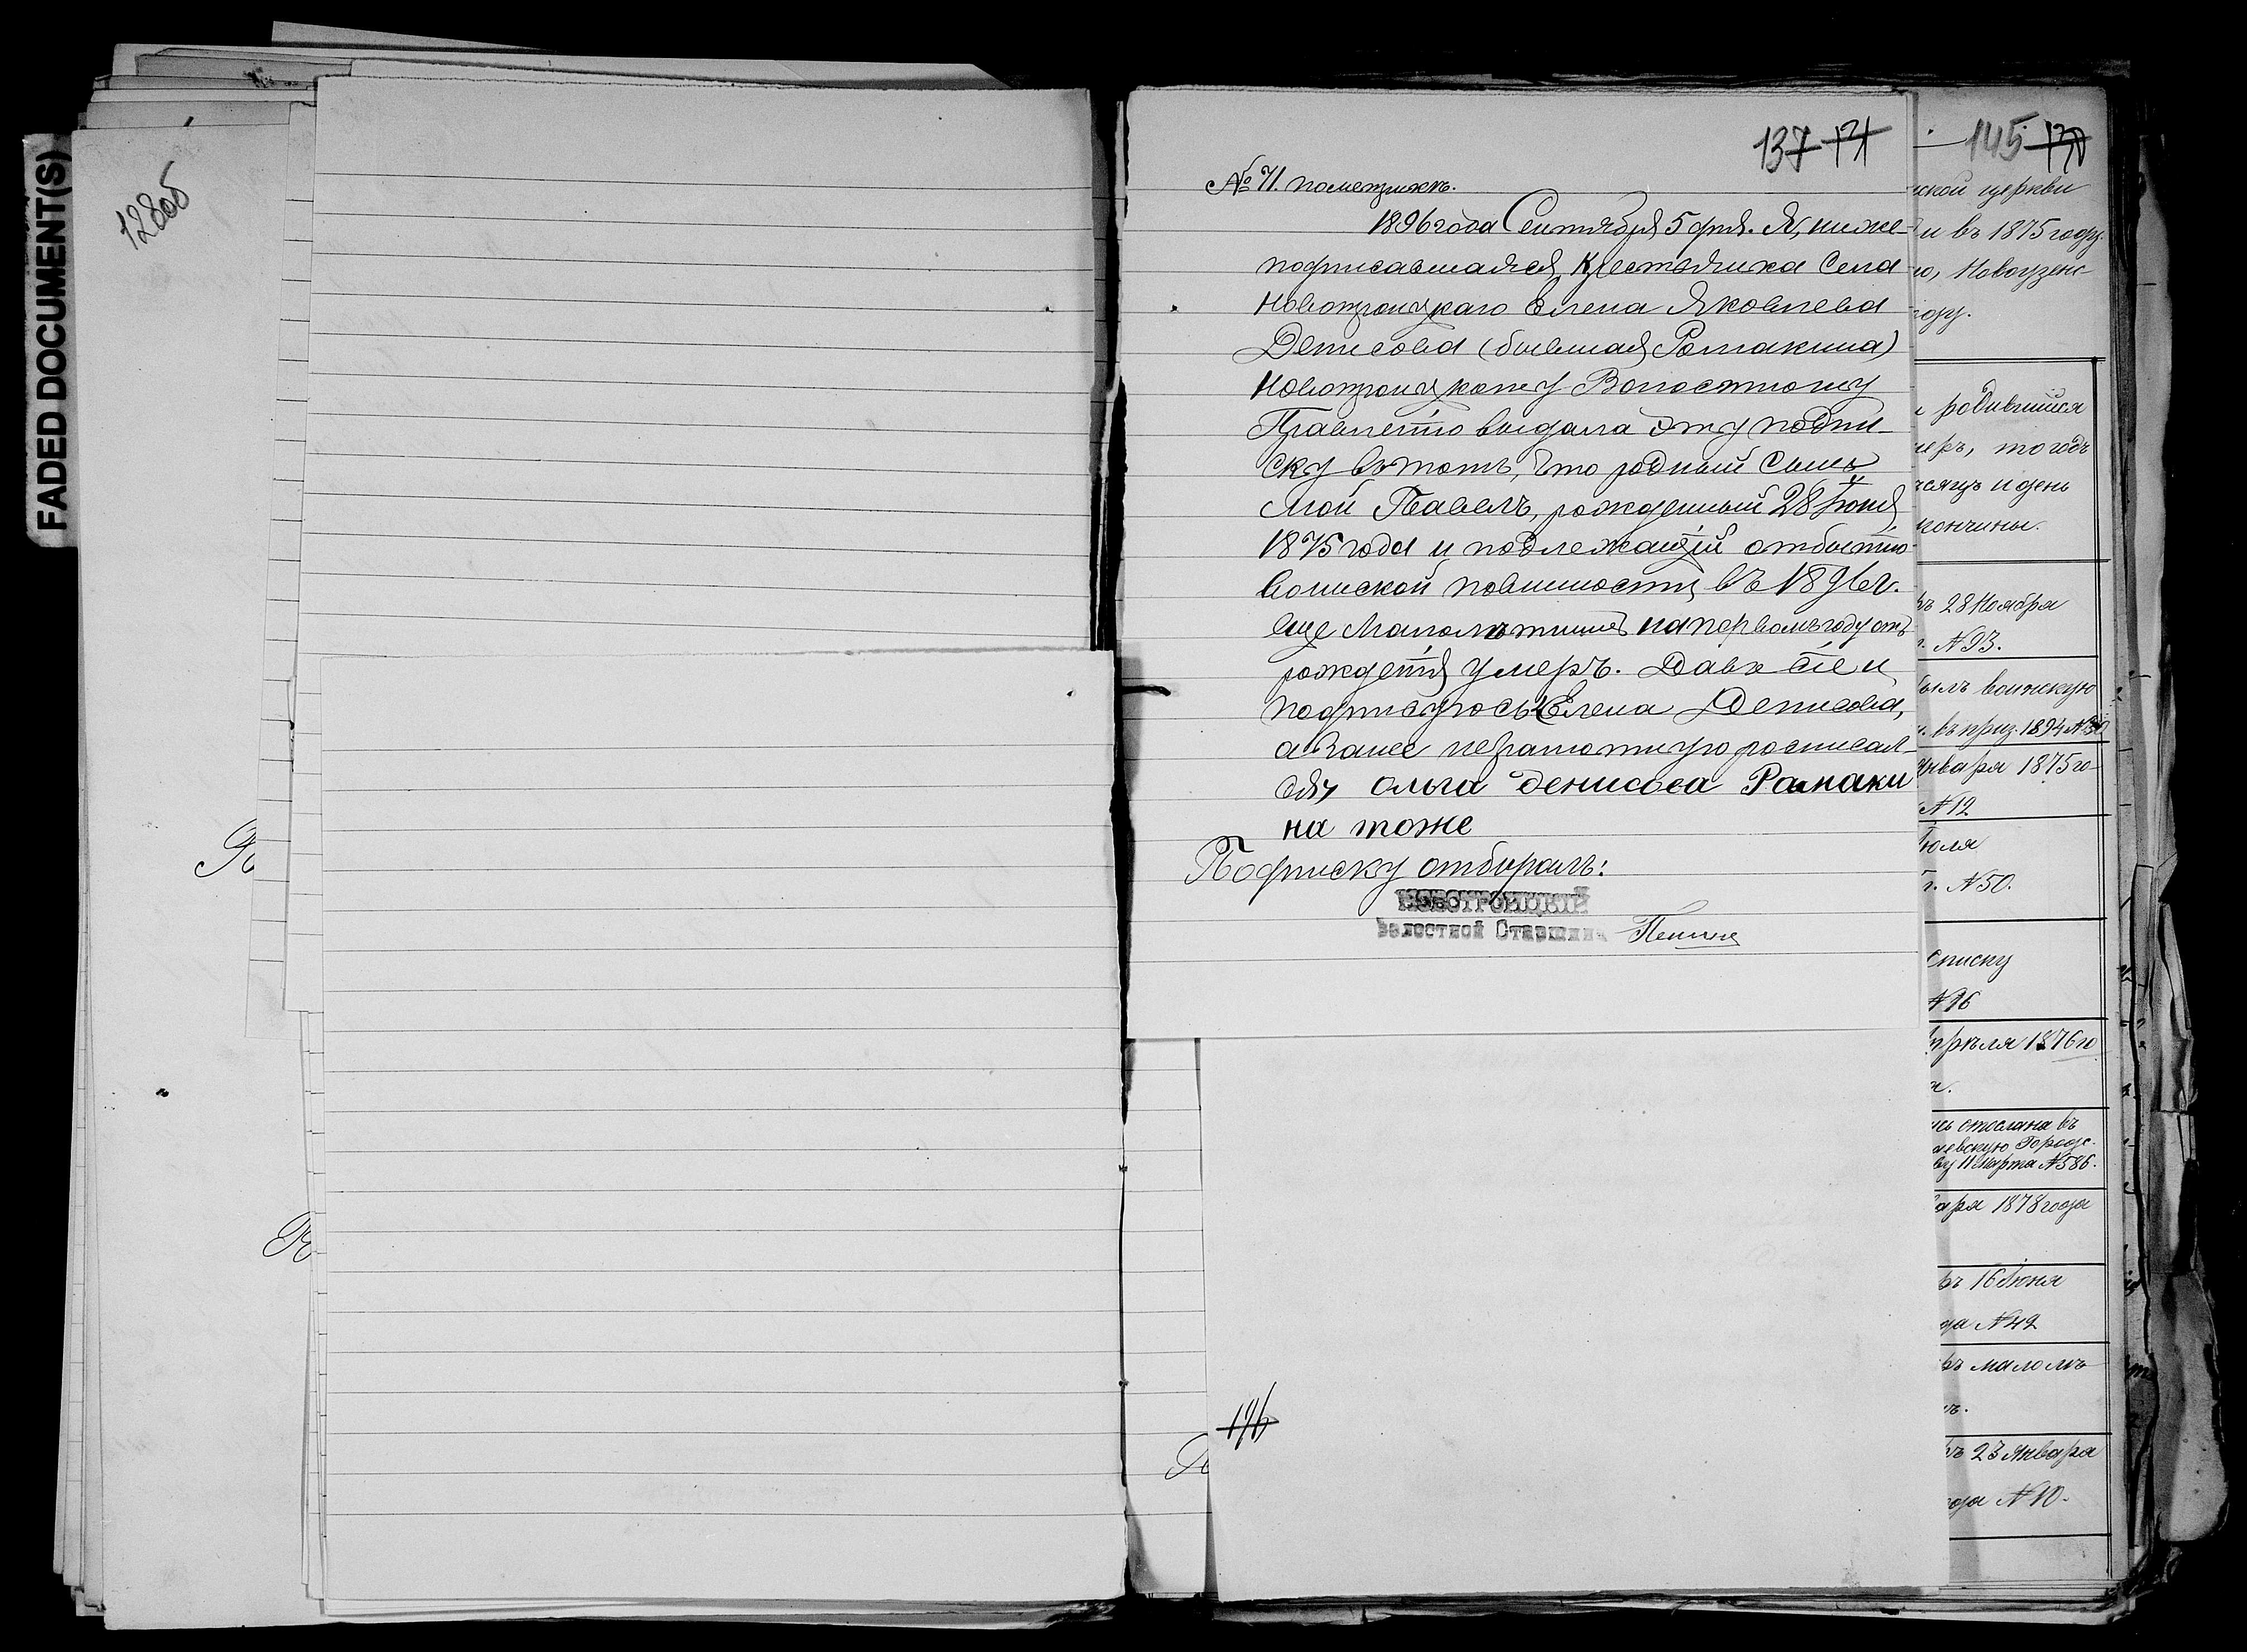 FADED DOCUMENT(S)
128об
137 171
№ 71. по метрикѣ.
1896 года Сентября 5 дня. Я, ниже-
подписавшаяся, Крестьянка Села
Новотроицкаго Елена Яковлева
Денисова (бывшая Ромакина)
Новотроицкому Волостному
Правленію выдала эту подпи-
ску въ томъ, что родный Сынъ
Мой Павелъ, рожденный 28 Іюня
1875 года и подлежащій отбытію
воинской повинности въ 1896 г.
еще Малолѣтнимъ на первомъ году отъ
рожденія умеръ. Давъ сіе и
подписуюсь Елена Денисова,
а Занее неграмотную росписал-
ась Ольга Денисова Рамаки
на тоже
Подписку отбиралъ:
НОВОТРОИЦКІЙ
Волостной Старшина
176
145 170
ской церкви
и въ 1875 году.
ю, Новоузенс-
году.
родившійся
меръ, то годъ
мѣсяцъ и день
кончины.
ръ 28 Ноября
г. №93.
былъ воинскую
въ приз. 1894 №30
Января 1875 го-
№12
Іюля
г. №50.
Списку
№96
прѣля 1876 го
отослана въ
аевскую Городс.
ву 11 Марта №586.
аря 1878 года
ръ 16 Іюня
да №42
ръ маломъ
ръ 23 Января
года №10.